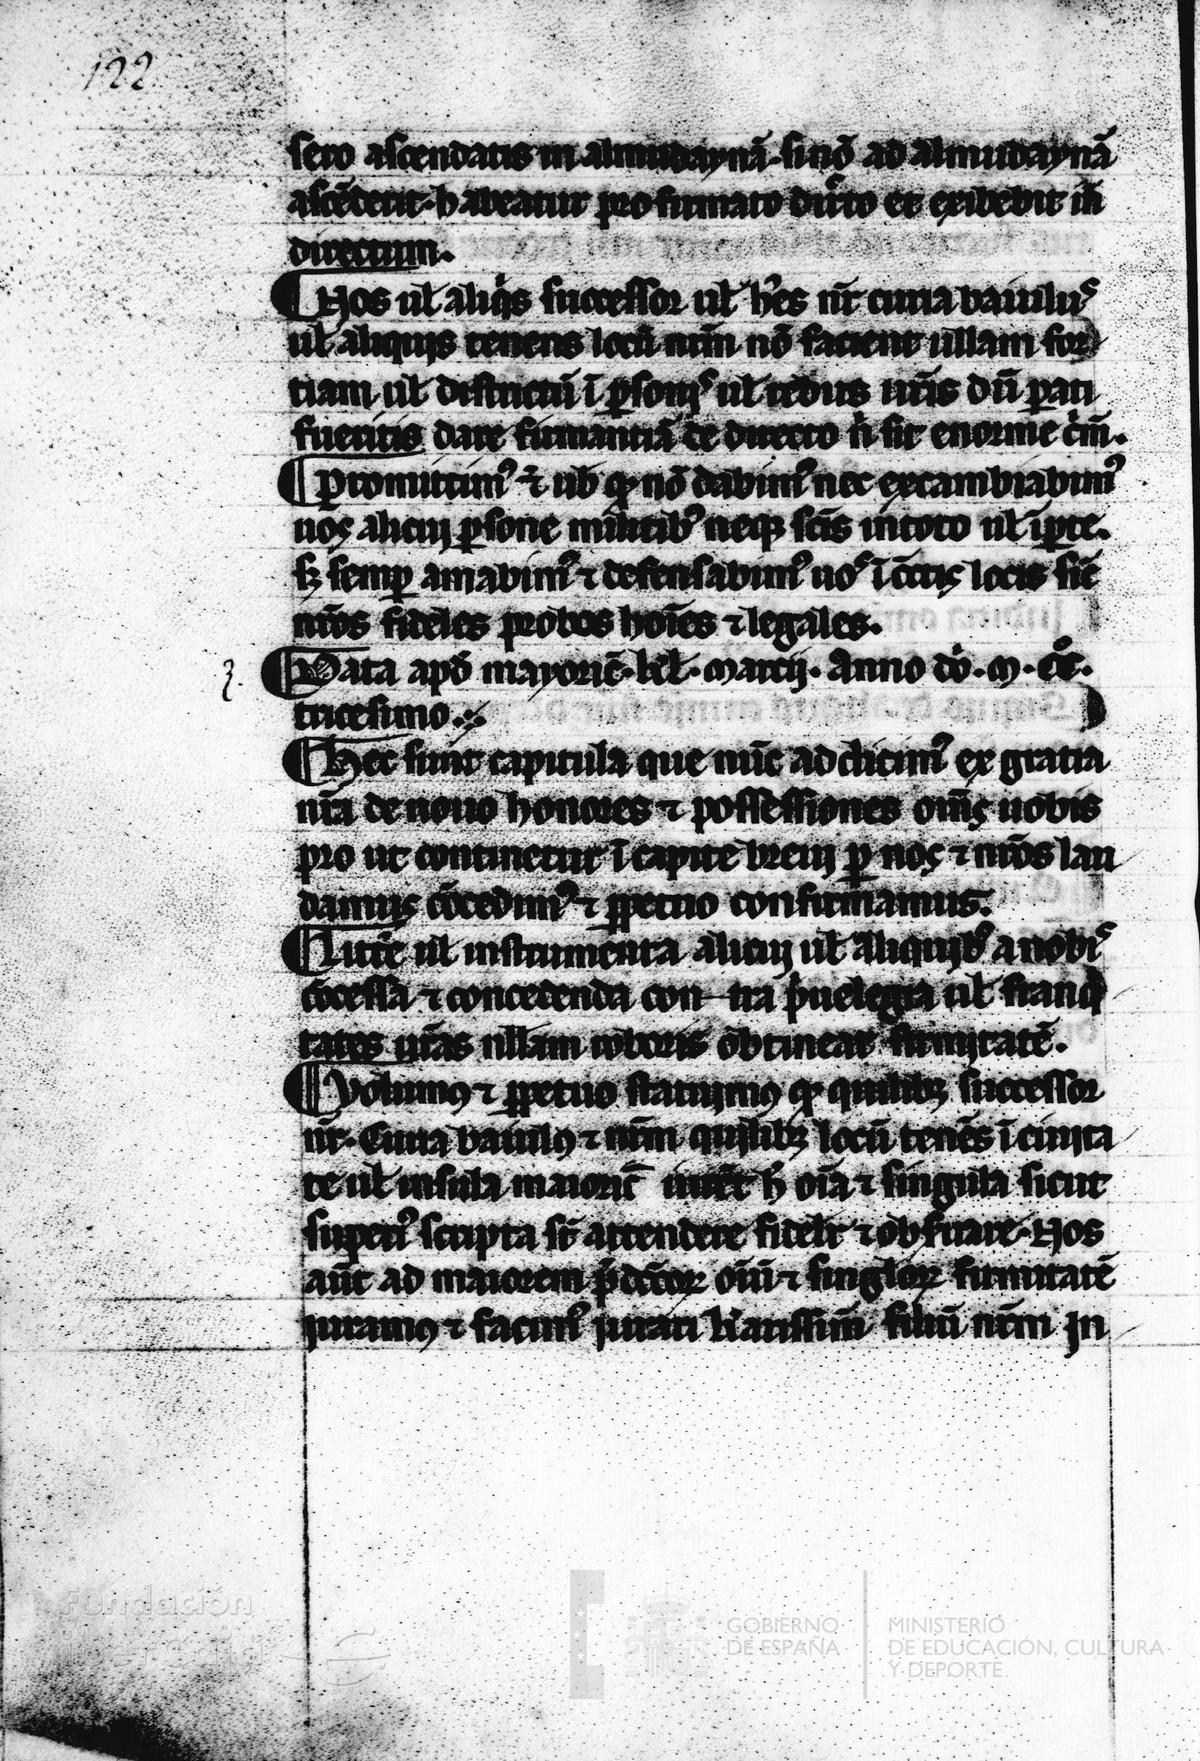 122
sero ascendatis in almudaynā. si nō ad almudaynā
ascēderit. h abeatur pro firmato dirto et exibebit ih
directum.
Nos ul aliqis successor ul hes nr curia baiulus
ul aliquis tenens locū nrm nō facient ullam for
tiam ul districtū ī psonis ul rebus uris dū pati
fueritis dare firmantiā de directo ni sit enorme crim.
Promittim⁹ ⁊ ub qđ nō dabim⁹ nec excambiabim⁹
uos alicui psone militib⁹ neq; scis in toto ul ī pte.
sȝ semp amabim⁹ ⁊ defensabim⁹ uos ī cūtis locis sic
nros fideles probos hoīes ⁊ legales.
3.
Data apđ mayoric. kl. marcij. Anno dni. M. cc.
tricesimo.
Hec sunt capitula que nūc addicim⁹ ex gratia
nra de nouo honores ⁊ possessiones oms uobis
pro ut continetur ī capite breui p nos ⁊ nros lau
damus cōcedim⁹ ⁊ ppetuo confirmamus.
Litre ul instrumenta alicui ul aliquib⁹ a nobis
cōcessa ⁊ concedenda con tra priuelegia ul franq
tates uras nullam roboris obtineat firmitatē.
Volum⁹ ⁊ ppetuo statuim⁹ qđ quilibȝ successor
nr. Curia baiul⁹ ⁊ nrm quilibȝ locū tenēs ī ciuita
te ul insula maioric iuret h oīa ⁊ singula sicut
superi⁹ scripta st attendere fidelit ⁊ obseruare. Nos
aut ad maiorem pdcor oīu ⁊ singlor firmitatē
juram⁹ ⁊ facim⁹ jurari karissim filiū nrm jn
Fundación
GOBIERNO
DE ESPAÑA
MINISTERIO
DE EDUCACIÓN, CULTURA
Y DEPORTE